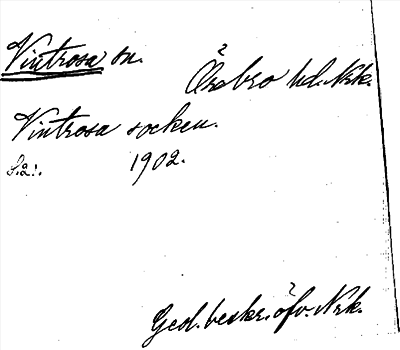 Vintrosa sn.
Örebro hd. Nrk.
Vintrosa socken.
S.å. 1902.
Geol. beskr. öfv. Nrk.